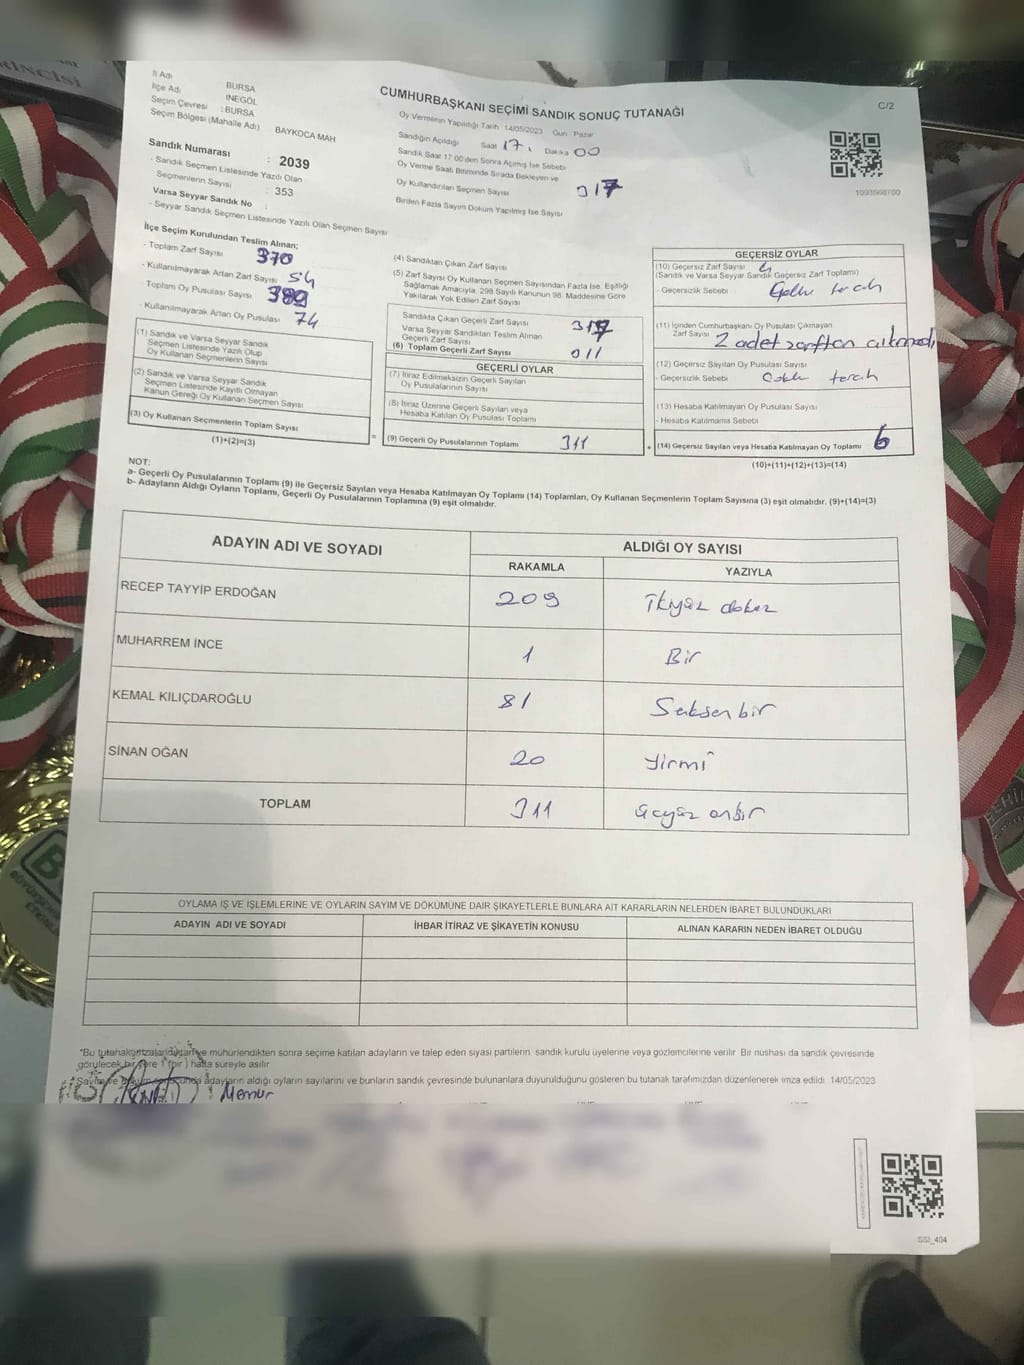 RİNCİSİ
İl Adı BURSA
İlçe Adı İNEGÖL
Seçim Çevresi : BURSA
Seçim Bölgesi (Mahalle Adı) BAYKOCA MAH
CUMHURBAŞKANI SEÇİMİ SANDIK SONUÇ TUTANAĞI
C/2
Oy Vermenin Yapıldığı Tarih 14/05/2023 Gün : Pazar
Sandığın Açıldığı Saat 17, Dakika 00
Sandık Saat 17 00'den Sonra Açılmış İse Sebebi
Oy Verme Saati Bitiminde Sırada Bekleyen ve
Oy Kullandırılan Seçmen Sayısı 317
Birden Fazla Sayım Döküm Yapılmış İse Sayısı
1093568700
Sandık Numarası : 2039
- Sandık Seçmen Listesinde Yazılı Olan
Seçmenlerin Sayısı : 353
Varsa Seyyar Sandık No :
- Seyyar Sandık Seçmen Listesinde Yazılı Olan Seçmen Sayısı
İlçe Seçim Kurulundan Teslim Alınan;
- Toplam Zarf Sayısı 370
- Kullanılmayarak Artan Zarf Sayısı 54
- Toplam Oy Pusulası Sayısı
- Kullanılmayarak Artan Oy Pusulası 74
(1) Sandık ve Varsa Seyyar Sandık
Seçmen Listesinde Yazılı Olup
Oy Kullanan Seçmenlerin Sayısı
(2) Sandık ve Varsa Seyyar Sandık
Seçmen Listesinde Kayıtlı Olmayan
Kanun Gereği Oy Kullanan Seçmen Sayısı
(3) Oy Kullanan Seçmenlerin Toplam Sayısı
(1)+(2)=(3)
(4) Sandıktan Çıkan Zarf Sayısı
(5) Zarf Sayısı Oy Kullanan Seçmen Sayısından Fazla İse, Eşitliği
Sağlamak Amacıyla, 298 Sayılı Kanunun 98. Maddesine Göre
Yakılarak Yok Edilen Zarf Sayısı
Sandıkta Çıkan Geçerli Zarf Sayısı
Varsa Seyyar Sandıktan Teslim Alınan
Geçerli Zarf Sayısı
(6) Toplam Geçerli Zarf Sayısı 011
GEÇERLİ OYLAR
(7) İtiraz Edilmeksizin Geçerli Sayılan
Oy Pusulalarının Sayısı
(8) İtiraz Üzerine Geçerli Sayılan veya
Hesaba Katılan Oy Pusulası Toplamı
= (9) Geçerli Oy Pusulalarının Toplamı 311
GEÇERSİZ OYLAR
(10) Geçersiz Zarf Sayısı 4
(Sandık ve Varsa Seyyar Sandık Geçersiz Zarf Toplamı)
- Geçersizlik Sebebi tercih
(11) İçinden Cumhurbaşkanı Oy Pusulası Çıkmayan
Zarf Sayısı 2 adet zarftan çıkmadı
(12) Geçersiz Sayılan Oy Pusulası Sayısı
- Geçersizlik Sebebi tercih
(13) Hesaba Katılmayan Oy Pusulası Sayısı
- Hesaba Katılmama Sebebi
+ (14) Geçersiz Sayılan veya Hesaba Katılmayan Oy Toplamı 6
(10)+(11)+(12)+(13)=(14)
NOT:
a- Geçerli Oy Pusulalarının Toplamı (9) ile Geçersiz Sayılan veya Hesaba Katılmayan Oy Toplamı (14) Toplamları, Oy Kullanan Seçmenlerin Toplam Sayısına (3) eşit olmalıdır. (9)+(14)=(3)
b- Adayların Aldığı Oyların Toplamı, Geçerli Oy Pusulalarının Toplamına (9) eşit olmalıdır.
ADAYIN ADI VE SOYADI
ALDIĞI OY SAYISI
RAKAMLA YAZIYLA
RECEP TAYYİP ERDOĞAN 209 ikiyüz dokuz
MUHARREM İNCE 1 Bir
KEMAL KILIÇDAROĞLU 81 Seksen bir
SİNAN OĞAN 20 yirmi
TOPLAM 311 üçyüz onbir
OYLAMA İŞ VE İŞLEMLERİNE VE OYLARIN SAYIM VE DÖKÜMÜNE DAİR ŞİKAYETLERLE BUNLARA AİT KARARLARIN NELERDEN İBARET BULUNDUKLARI
ADAYIN ADI VE SOYADI İHBAR İTİRAZ VE ŞİKAYETİN KONUSU ALINAN KARARIN NEDEN İBARET OLDUĞU
*Bu tutanak imzalandıktan ve mühürlendikten sonra seçime katılan adayların ve talep eden siyasi partilerin sandık kurulu üyelerine veya gözlemcilerine verilir. Bir nüshası da sandık çevresinde
görülecek bir yere 1 (bir) hafta süreyle asılır
adayların aldığı oyların sayılarını ve bunların sandık çevresinde bulunanlara duyurulduğunu gösteren bu tutanak tarafımızdan düzenlenerek imza edildi 14/05/2023
Memur
SSI_404